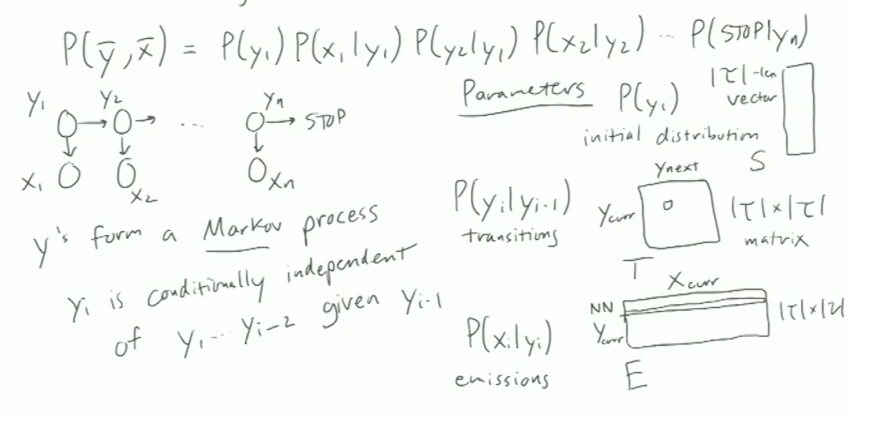 P(ȳ, x̄) = P(y₁) P(x₁|y₁) P(y₂|y₁) P(x₂|y₂) ·· P(STOP|yₙ)
y₁ y₂ ... yₙ → STOP
x₁ x₂ xₙ
y's form a Markov process
yᵢ is conditionally independent
of y₁ ·· yᵢ₋₂ given yᵢ₋₁
Parameters P(y₁) |τ|-len
vector
initial distribution S
P(yᵢ|yᵢ₋₁)
transitions
ynext
ycurr
|τ|×|τ|
matrix
T
P(xᵢ|yᵢ)
emissions
xcurr
NN
ycurr
E